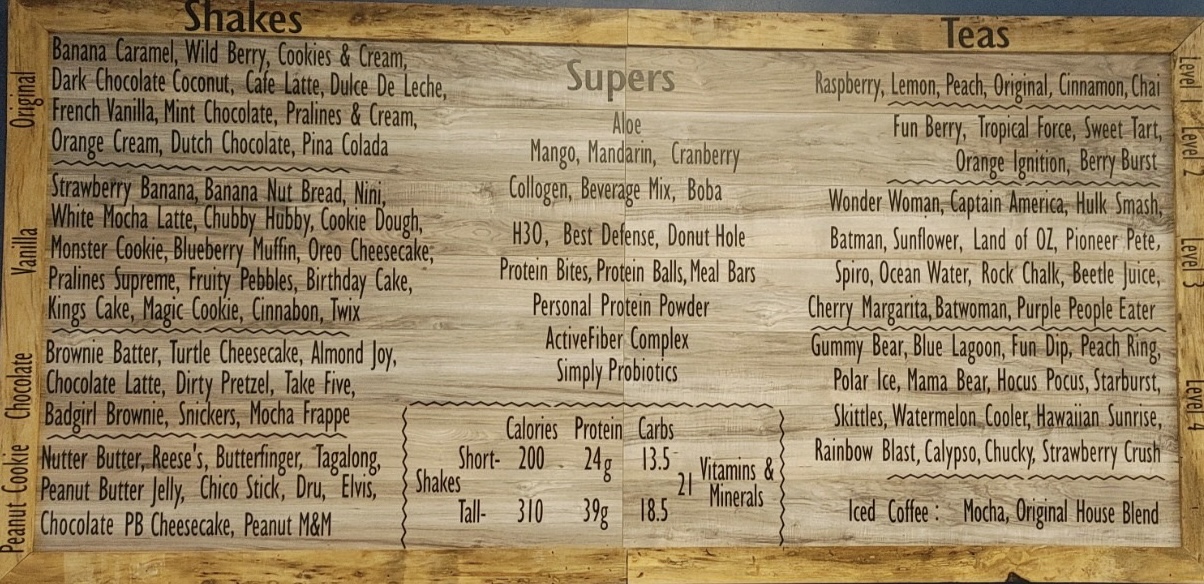 Shakes
Original
Banana Caramel, Wild Berry, Cookies & Cream,
Dark Chocolate Coconut, Cafe Latte, Dulce De Leche,
French Vanilla, Mint Chocolate, Pralines & Cream,
Orange Cream, Dutch Chocolate, Pina Colada
Vanilla
Strawberry Banana, Banana Nut Bread, Nini,
White Mocha Latte, Chubby Hubby, Cookie Dough,
Monster Cookie, Blueberry Muffin, Oreo Cheesecake,
Pralines Supreme, Fruity Pebbles, Birthday Cake,
Kings Cake, Magic Cookie, Cinnabon, Twix
Chocolate
Brownie Batter, Turtle Cheesecake, Almond Joy,
Chocolate Latte, Dirty Pretzel, Take Five,
Badgirl Brownie, Snickers, Mocha Frappe
Peanut Cookie
Nutter Butter, Reese's, Butterfinger, Tagalong,
Peanut Butter Jelly, Chico Stick, Dru, Elvis,
Chocolate PB Cheesecake, Peanut M&M
Supers
Aloe
Mango, Mandarin, Cranberry
Collogen, Beverage Mix, Boba
H3O, Best Defense, Donut Hole
Protein Bites, Protein Balls, Meal Bars
Personal Protein Powder
ActiveFiber Complex
Simply Probiotics
Calories Protein Carbs
Shakes
Short- 200 24g 13.5
Tall- 310 39g 18.5
21 Vitamins &
Minerals
Teas
Level 1
Raspberry, Lemon, Peach, Original, Cinnamon, Chai
Level 2
Fun Berry, Tropical Force, Sweet Tart,
Orange Ignition, Berry Burst
Level 3
Wonder Woman, Captain America, Hulk Smash,
Batman, Sunflower, Land of OZ, Pioneer Pete,
Spiro, Ocean Water, Rock Chalk, Beetle Juice,
Cherry Margarita, Batwoman, Purple People Eater
Level 4
Gummy Bear, Blue Lagoon, Fun Dip, Peach Ring,
Polar Ice, Mama Bear, Hocus Pocus, Starburst,
Skittles, Watermelon Cooler, Hawaiian Sunrise,
Rainbow Blast, Calypso, Chucky, Strawberry Crush
Iced Coffee : Mocha, Original House Blend